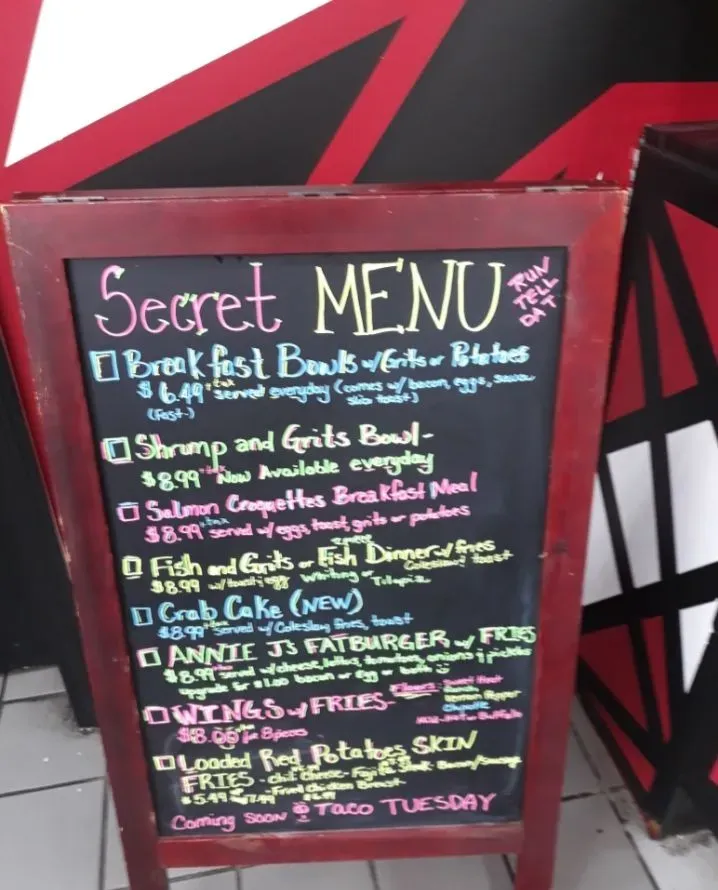 Secret MENU
RUN
TELL
DAT
Breakfast Bowls w/Grits or Potatoes
$6.49 +tax served everyday (comes w/ bacon, eggs,
(fast.) toast)
Shrimp and Grits Bowl-
$8.99 +tax Now Available everyday
Salmon Croquettes Breakfast Meal
$8.99 +tax served w/eggs, toast, grits or potatoes
Fish and Grits or Fish Dinner w/ fries
Coleslaw toast
$8.99 w/toast egg Whiting or Tilapia
Crab Cake (NEW)
$8.99 +tax served w/ Coleslaw fries, toast
ANNIE J's FATBURGER w/ FRIES
$8.99 +tax served w/cheese, lettuce, tomatoes, onions & pickles
upgrade for $1.00 bacon or egg or both
WINGS w/ FRIES- Flavors: Sweet Heat
Ranch
Lemon Pepper
Chipotle
Mild, Hot or Buffalo
$8.00 +tax for 8 pieces
Loaded Red Potatoes SKIN
FRIES - chili cheese - Fajita Steak - Bacon/Sausage
- Fried Chicken Breast -
$5.49 $7.99
Coming Soon Taco TUESDAY